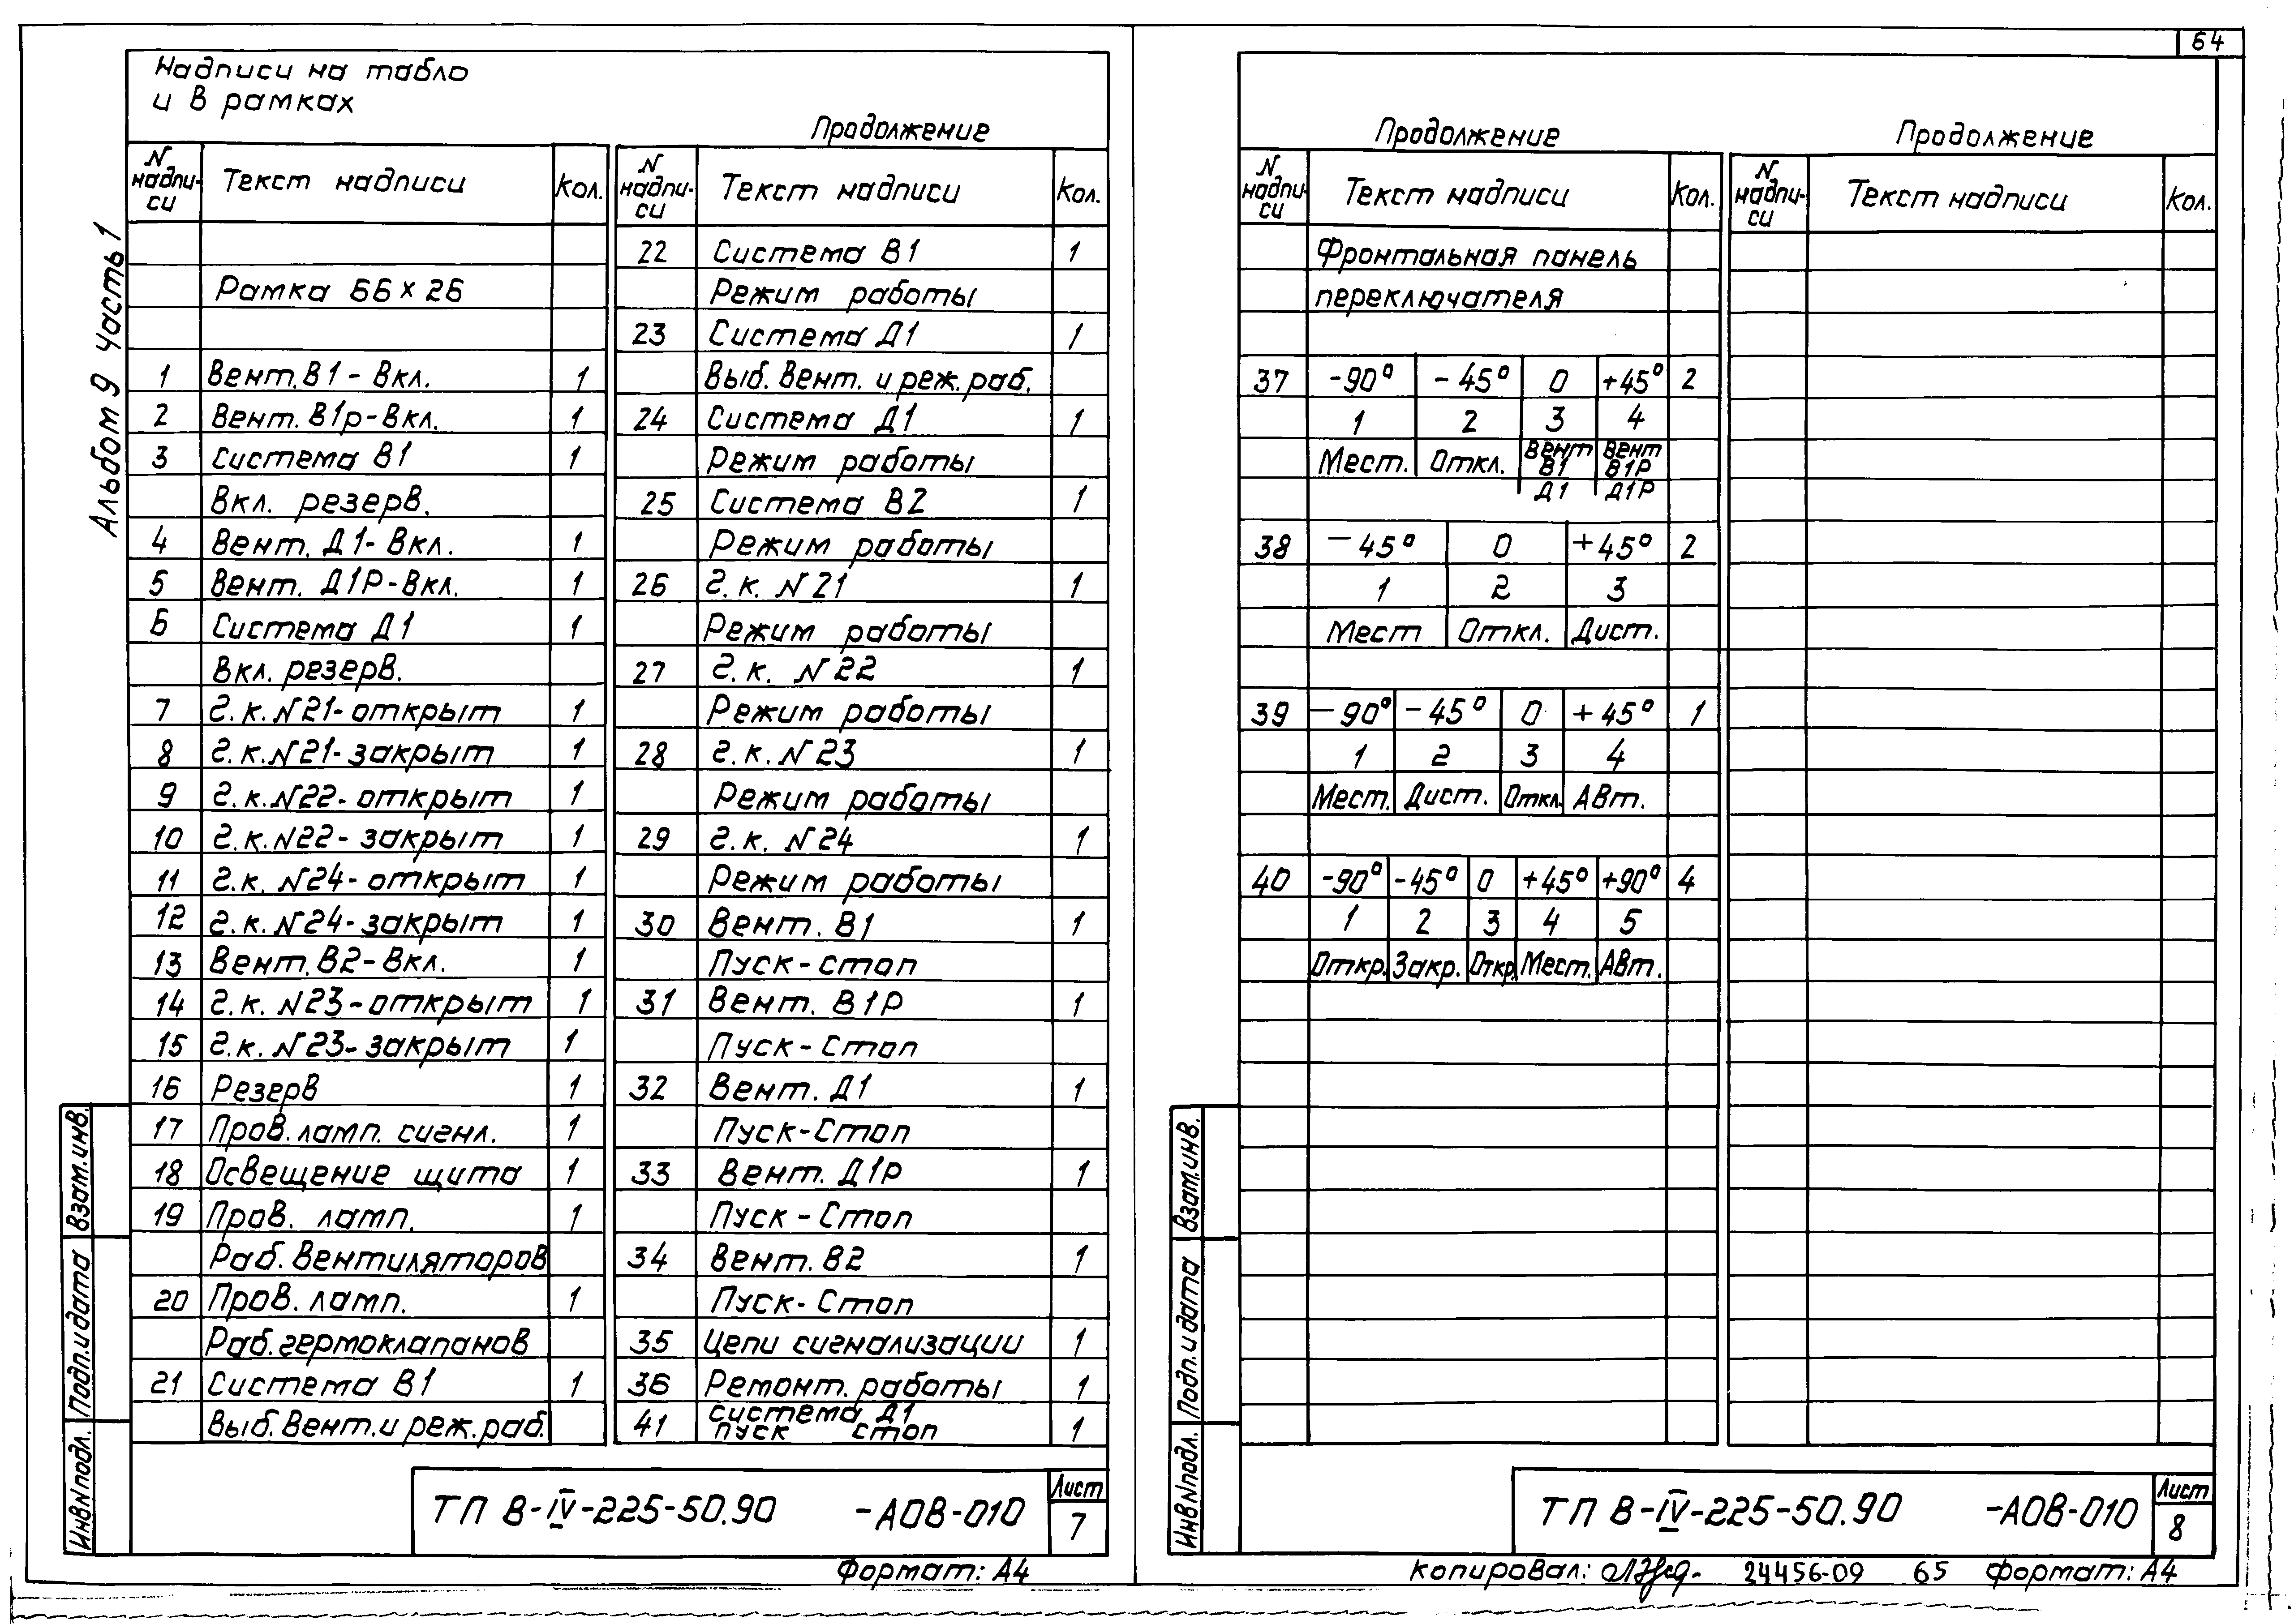 64
Альбом 9 часть 1
Надписи на табло
и в рамках
Продолжение
N надпи-си | Текст надписи | Кол.
Рамка 66×26
1 Вент. В1 - Вкл. 1
2 Вент. В1р - Вкл. 1
3 Система В1 1
Вкл. резерв.
4 Вент. Д1 - Вкл. 1
5 Вент. Д1Р - Вкл. 1
6 Система Д1 1
Вкл. резерв.
7 г.к. N21 - открыт 1
8 г.к. N21 - закрыт 1
9 г.к. N22 - открыт 1
10 г.к. N22 - закрыт 1
11 г.к. N24 - открыт 1
12 г.к. N24 - закрыт 1
13 Вент. В2 - Вкл. 1
14 г.к. N23 - открыт 1
15 г.к. N23 - закрыт 1
16 Резерв 1
17 Пров. ламп. сигнл. 1
18 Освещение щита 1
19 Пров. ламп. 1
Раб. вентиляторов
20 Пров. ламп. 1
Раб. гермоклапанов
21 Система В1 1
Выб. вент. и реж. раб.
N надпи-си | Текст надписи | Кол.
22 Система В1 1
Режим работы
23 Система Д1 1
Выб. вент. и реж. раб.
24 Система Д1 1
Режим работы
25 Система В2 1
Режим работы
26 г.к. N21 1
Режим работы
27 г.к. N22 1
Режим работы
28 г.к. N23 1
Режим работы
29 г.к. N24 1
Режим работы
30 Вент. В1 1
Пуск-стоп
31 Вент. В1Р 1
Пуск-Стоп
32 Вент. Д1 1
Пуск-Стоп
33 Вент. Д1Р 1
Пуск-Стоп
34 Вент. В2 1
Пуск-Стоп
35 Цепи сигнализации 1
36 Ремонт. работы 1
41 система Д1 1
пуск стоп
Взам.инв.
Подп.и дата
Инв N подл.
ТП В-IV-225-50.90 -АОВ-010
Лист
7
Формат: А4
Продолжение
Продолжение
N надпи-си | Текст надписи | Кол.
N надпи-си | Текст надписи | Кол.
Фронтальная панель
переключателя
37 -90° -45° 0 +45° 2
1 2 3 4
Мест. Откл. Вент В1 Вент В1Р
Д1 Д1Р
38 -45° 0 +45° 2
1 2 3
Мест Откл. Дист.
39 -90° -45° 0 +45° 1
1 2 3 4
Мест. Дист. Откл. АВт.
40 -90° -45° 0 +45° +90° 4
1 2 3 4 5
Откр. Закр. Откр Мест. АВт.
Взам.инв.
Подп.и дата
Инв N подл.
ТП В-IV-225-50.90 -АОВ-010
Лист
8
копировал: 24456-09 65 Формат: А4